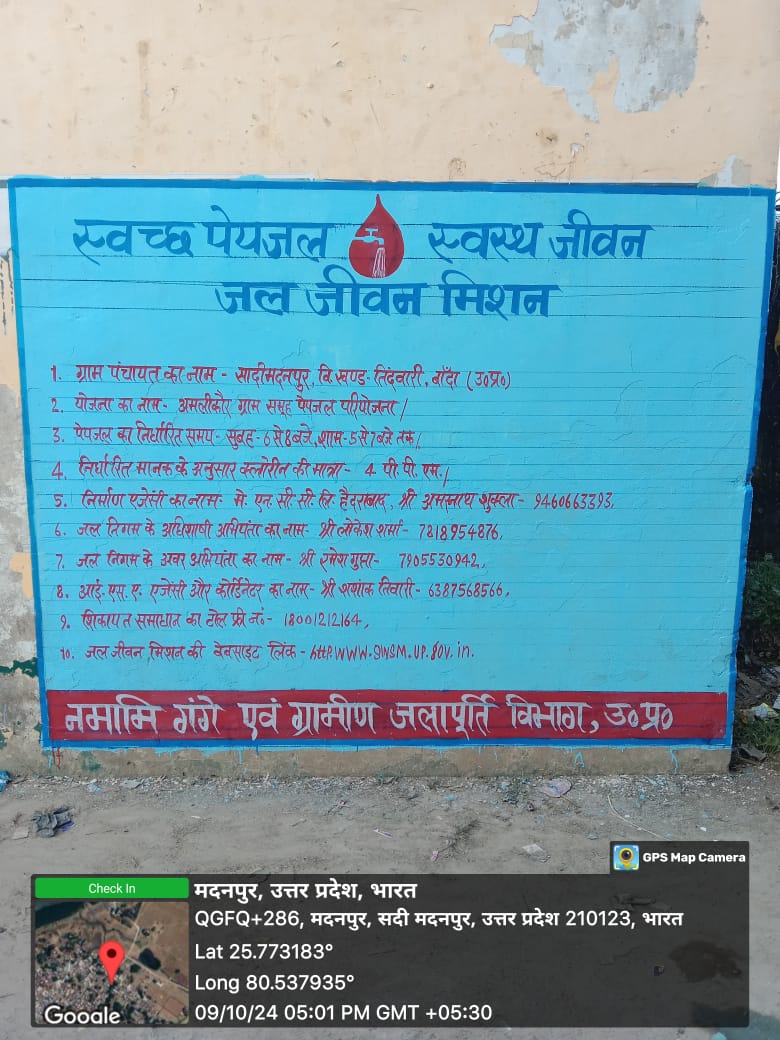 स्वच्छ पेयजल स्वस्थ जीवन
जल जीवन मिशन
1. ग्राम पंचायत का नाम - सादीमदनपुर, वि.खण्ड- तिंदवारी, बाँदा (उ०प्र०)
2. योजना का नाम - अमलीकौर ग्राम समूह पेयजल परियोजना/
3. पेयजल का निर्धारित समय - सुबह - 6 से 8 बजे, शाम - 5 से 7 बजे तक/
4. निर्धारित मानक के अनुसार क्लोरीन की मात्रा - 4 पी. पी. एम./
5. निर्माण एजेंसी का नाम- मे. एन. सी. सी. लि. हैदराबाद, श्री अमरनाथ शुक्ला - 9460663393,
6. जल निगम के अधिशाषी अभियंता का नाम- श्री लोकेश शर्मा - 7818954876,
7. जल निगम के अवर अभियंता का नाम - श्री रमेश गुप्ता - 7905530942,
8. आई. एस. ए. एजेंसी और कोर्डिनेटर का नाम- श्री शशांक तिवारी - 6387568566,
9. शिकायत समाधान का टोल फ्री नं०- 18001212164,
10. जल जीवन मिशन की वेबसाइट लिंक - http.WWW.SWSM.UP.gov.in.
नमामि गंगे एवं ग्रामीण जलापूर्ति विभाग, उ०प्र०
GPS Map Camera
Check In
मदनपुर, उत्तर प्रदेश, भारत
QGFQ+286, मदनपुर, सदी मदनपुर, उत्तर प्रदेश 210123, भारत
Lat 25.773183°
Long 80.537935°
09/10/24 05:01 PM GMT +05:30
Google